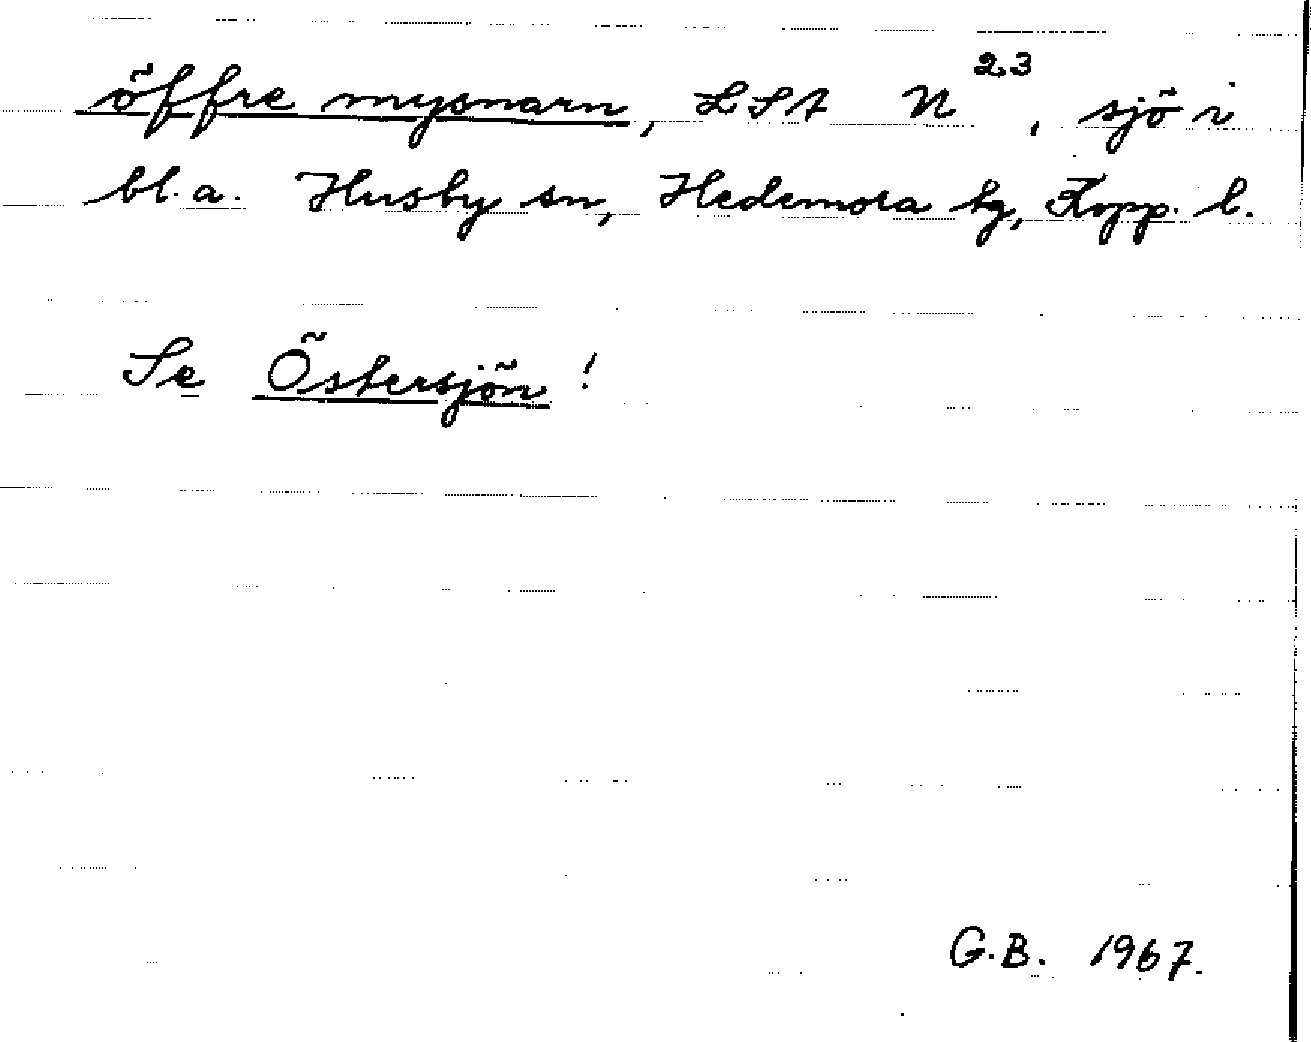 öffre mysnarn, LSA N 23, sjö i
bl.a. Husby sn, Hedemora tg, Kopp. l.
Se Östersjön!
G.B. 1967.